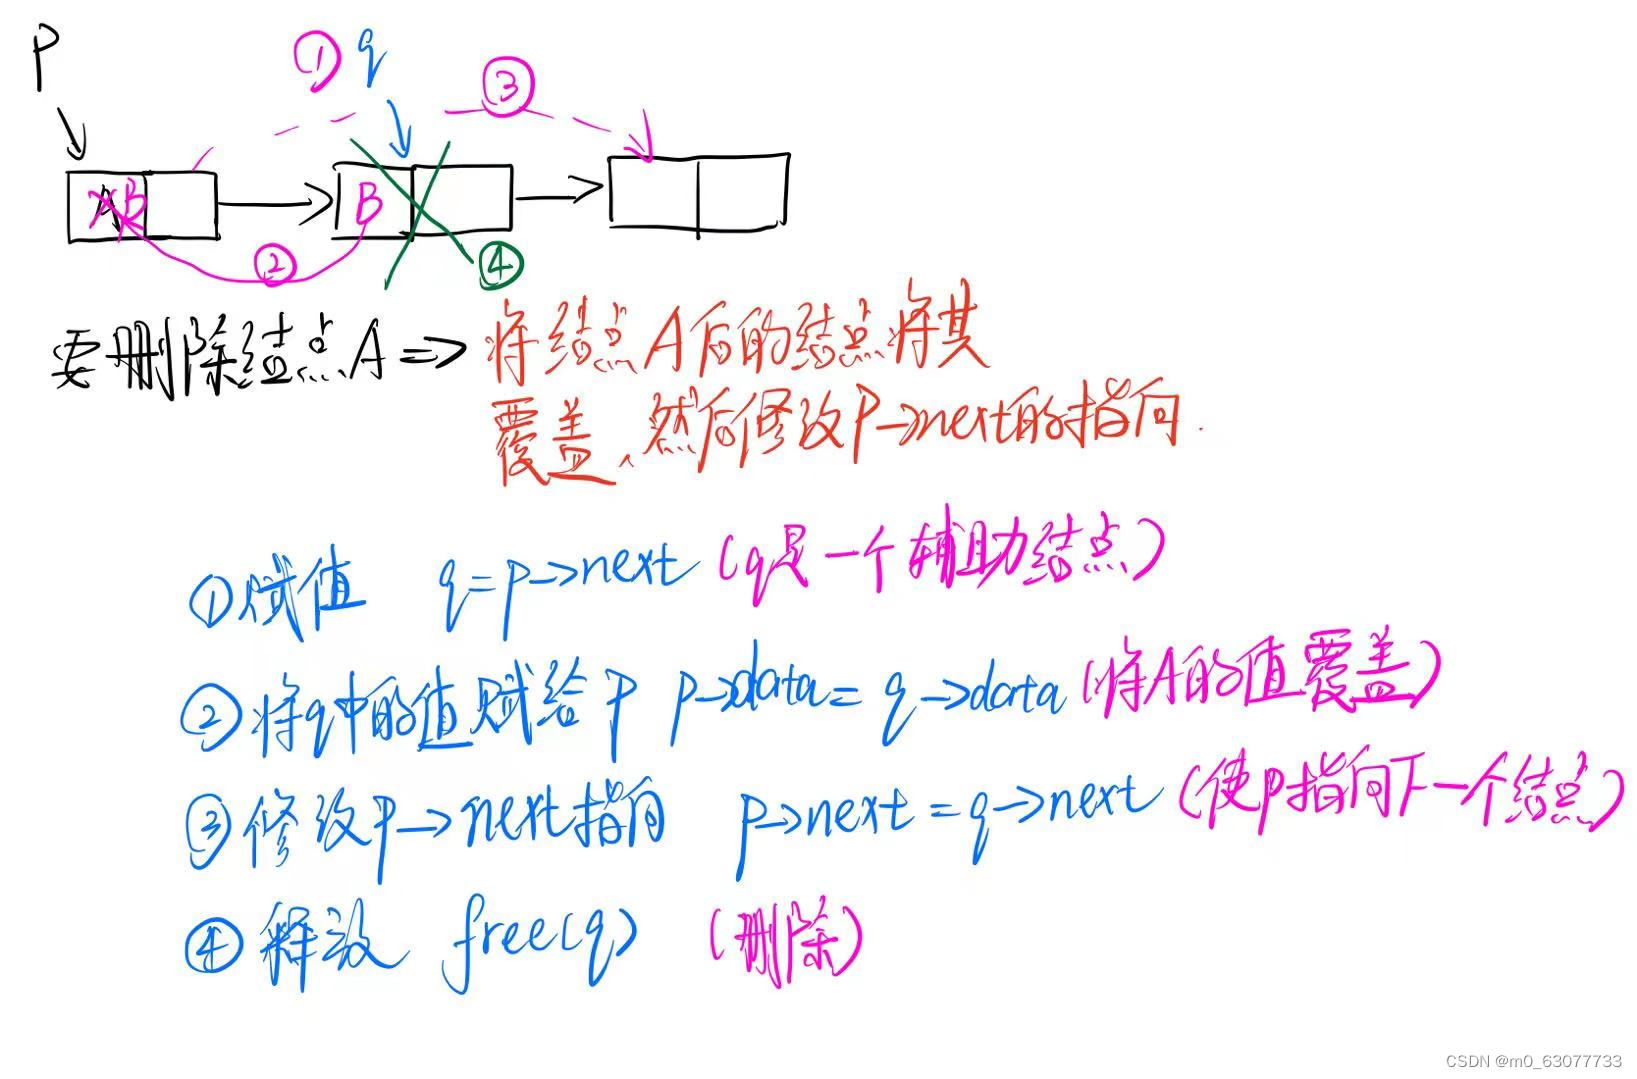 P
① q ③
A B B
② ④
要删除结点A => 将结点A后的结点将其
覆盖、然后修改P->next的指向.
①赋值 q=p->next (q是一个辅助结点)
②将q中的值赋给P p->data=q->data (将A的值覆盖)
③修改p->next指向 p->next=q->next (使p指向下一个结点)
④释放 free(q) (删除)
CSDN @m0_63077733